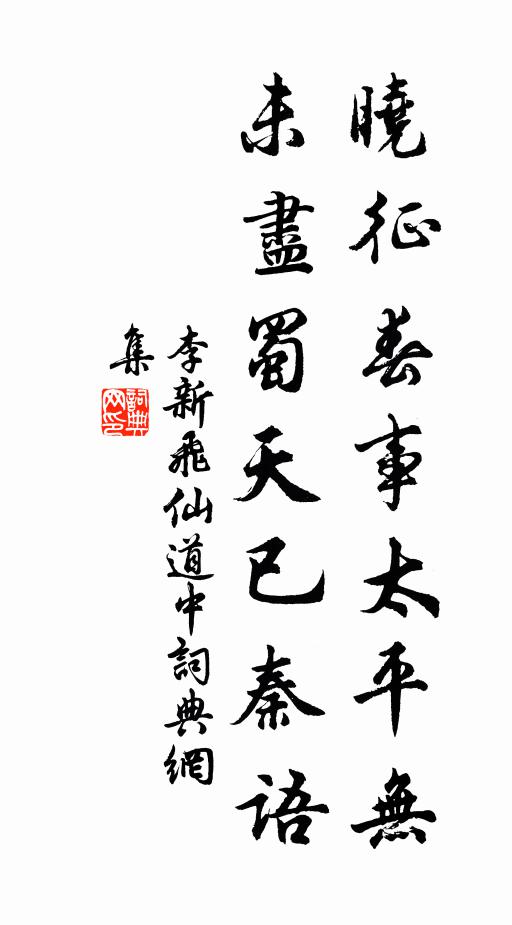 曉征春事太平無
未盡蜀天已秦語
李新飛仙道中詞典網
集
詞典网印